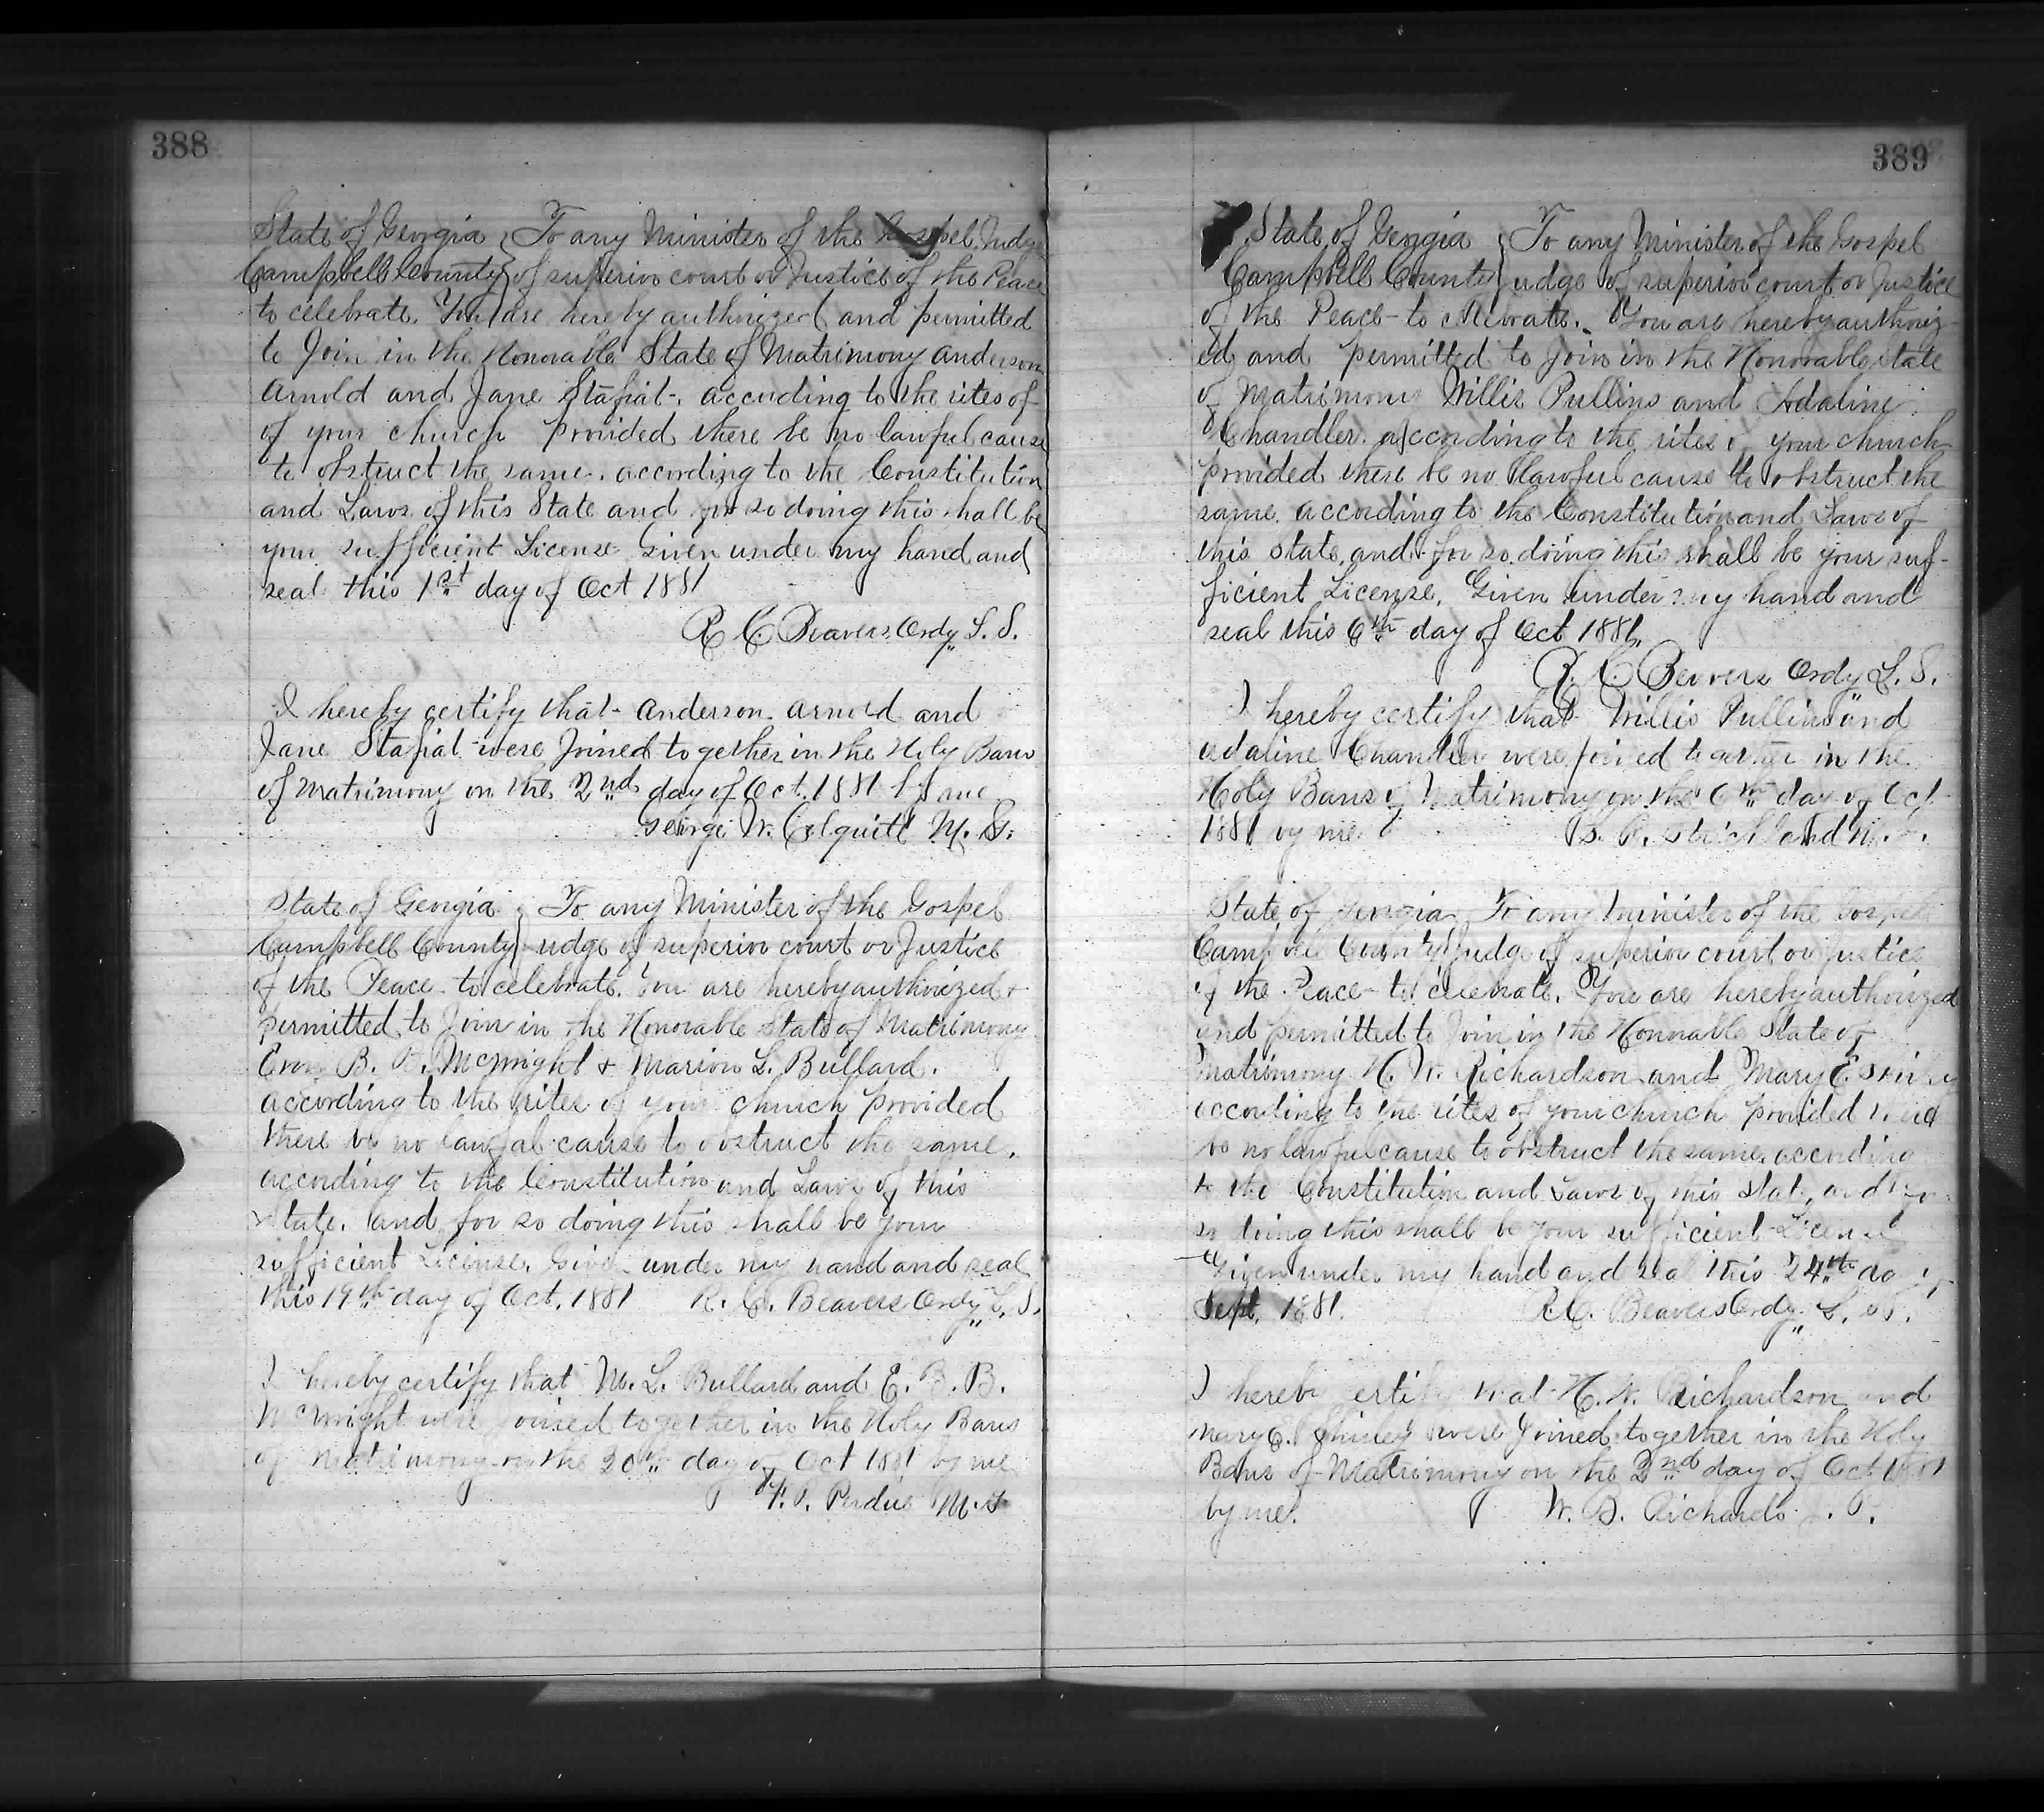 388
State of Georgia } To any Minister of the Gospel, Judge
Campbell County } of superior court or Justice of the Peace
to celebrate. You are hereby authorized and permitted
to Join in the Honorable State of Matrimony Anderson
Arnold and Jane Stafial, according to the rites of
of your church provided there be no lawful cause
to obstruct the same. according to the Constitution
and Laws of this State and for so doing this shall be
your sufficient License Given under my hand and
seal this 1st day of Oct 1881
R. C. Beavers Ordy L. S.
I hereby certify that Anderson Arnold and
Jane Stafial were Joined together in the Holy Bans
of Matrimony on the 2nd day of Oct. 1881 by me
George W. Colquitt M. G.
State of Georgia } To any Minister of the Gospel
Campbell County } udge of superior court or Justice
of the Peace to celebrate. You are hereby authorized +
permitted to Join in the Honorable State of Matrimony
B. McWright + Marion L. Bullard.
according to the rites of your church provided
there be no lawful cause to obstruct the same.
according to the Constitution and Laws of this
State. and for so doing this shall be your
sufficient License. Given under my hand and seal
this 19th day of Oct. 1881 R. C. Beavers Ordy L. S.
I hereby certify that M. L. Bullard and E. B. B.
McWright were Joined together in the Holy Bans
of Matrimony on the 20th day of Oct 1881 by me
Perdue M. G
389
State of Georgia } To any Minister of the Gospel
Campbell County } udge of superior court or Justice
of the Peace to celebrate. You are hereby authoriz-
ed and permitted to Join in the Honorable state
of Matrimony Willis Pullins and Adaline
Chandler. according to the rites of your church
provided there be no lawful cause to obstruct the
same. according to the Constitution and Laws of
this state, and for so doing this shall be your suf-
ficient License. Given under my hand and
seal this 6th day of Oct 1881,
R. C. Beavers Ordy L. S.
I hereby certify that Willis Pullins and
adaline Chandler were joined together in the
Holy Bans of Matrimony on the 6th day of Oct
1881 by me Strickland
State of Georgia } To any Minister of the Gospel
Campbell County } Judge of superior court or Justice
of the Peace to celebrate. You are hereby authorized
and permitted to Join in the Honorable State of
Matrimony H. W. Richardson and Mary E. Shirley
according to the rites of your church provided there
be no lawful cause to obstruct the same. according
to the Constitution and Laws of this State, and for
so doing this shall be your sufficient License
Given under my hand and seal this 24th da of
Sept. 1881. R. C. Beavers Ordy L. S.
I hereby certify that H. W. Richardson and
Mary E. Shirley were Joined together in the Holy
Bans of Matrimony on the 2nd day of Oct 1881
by me. W. B. Richards J. P.